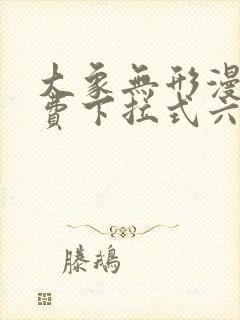 大象無形漫
費下拉式六
滕鵝